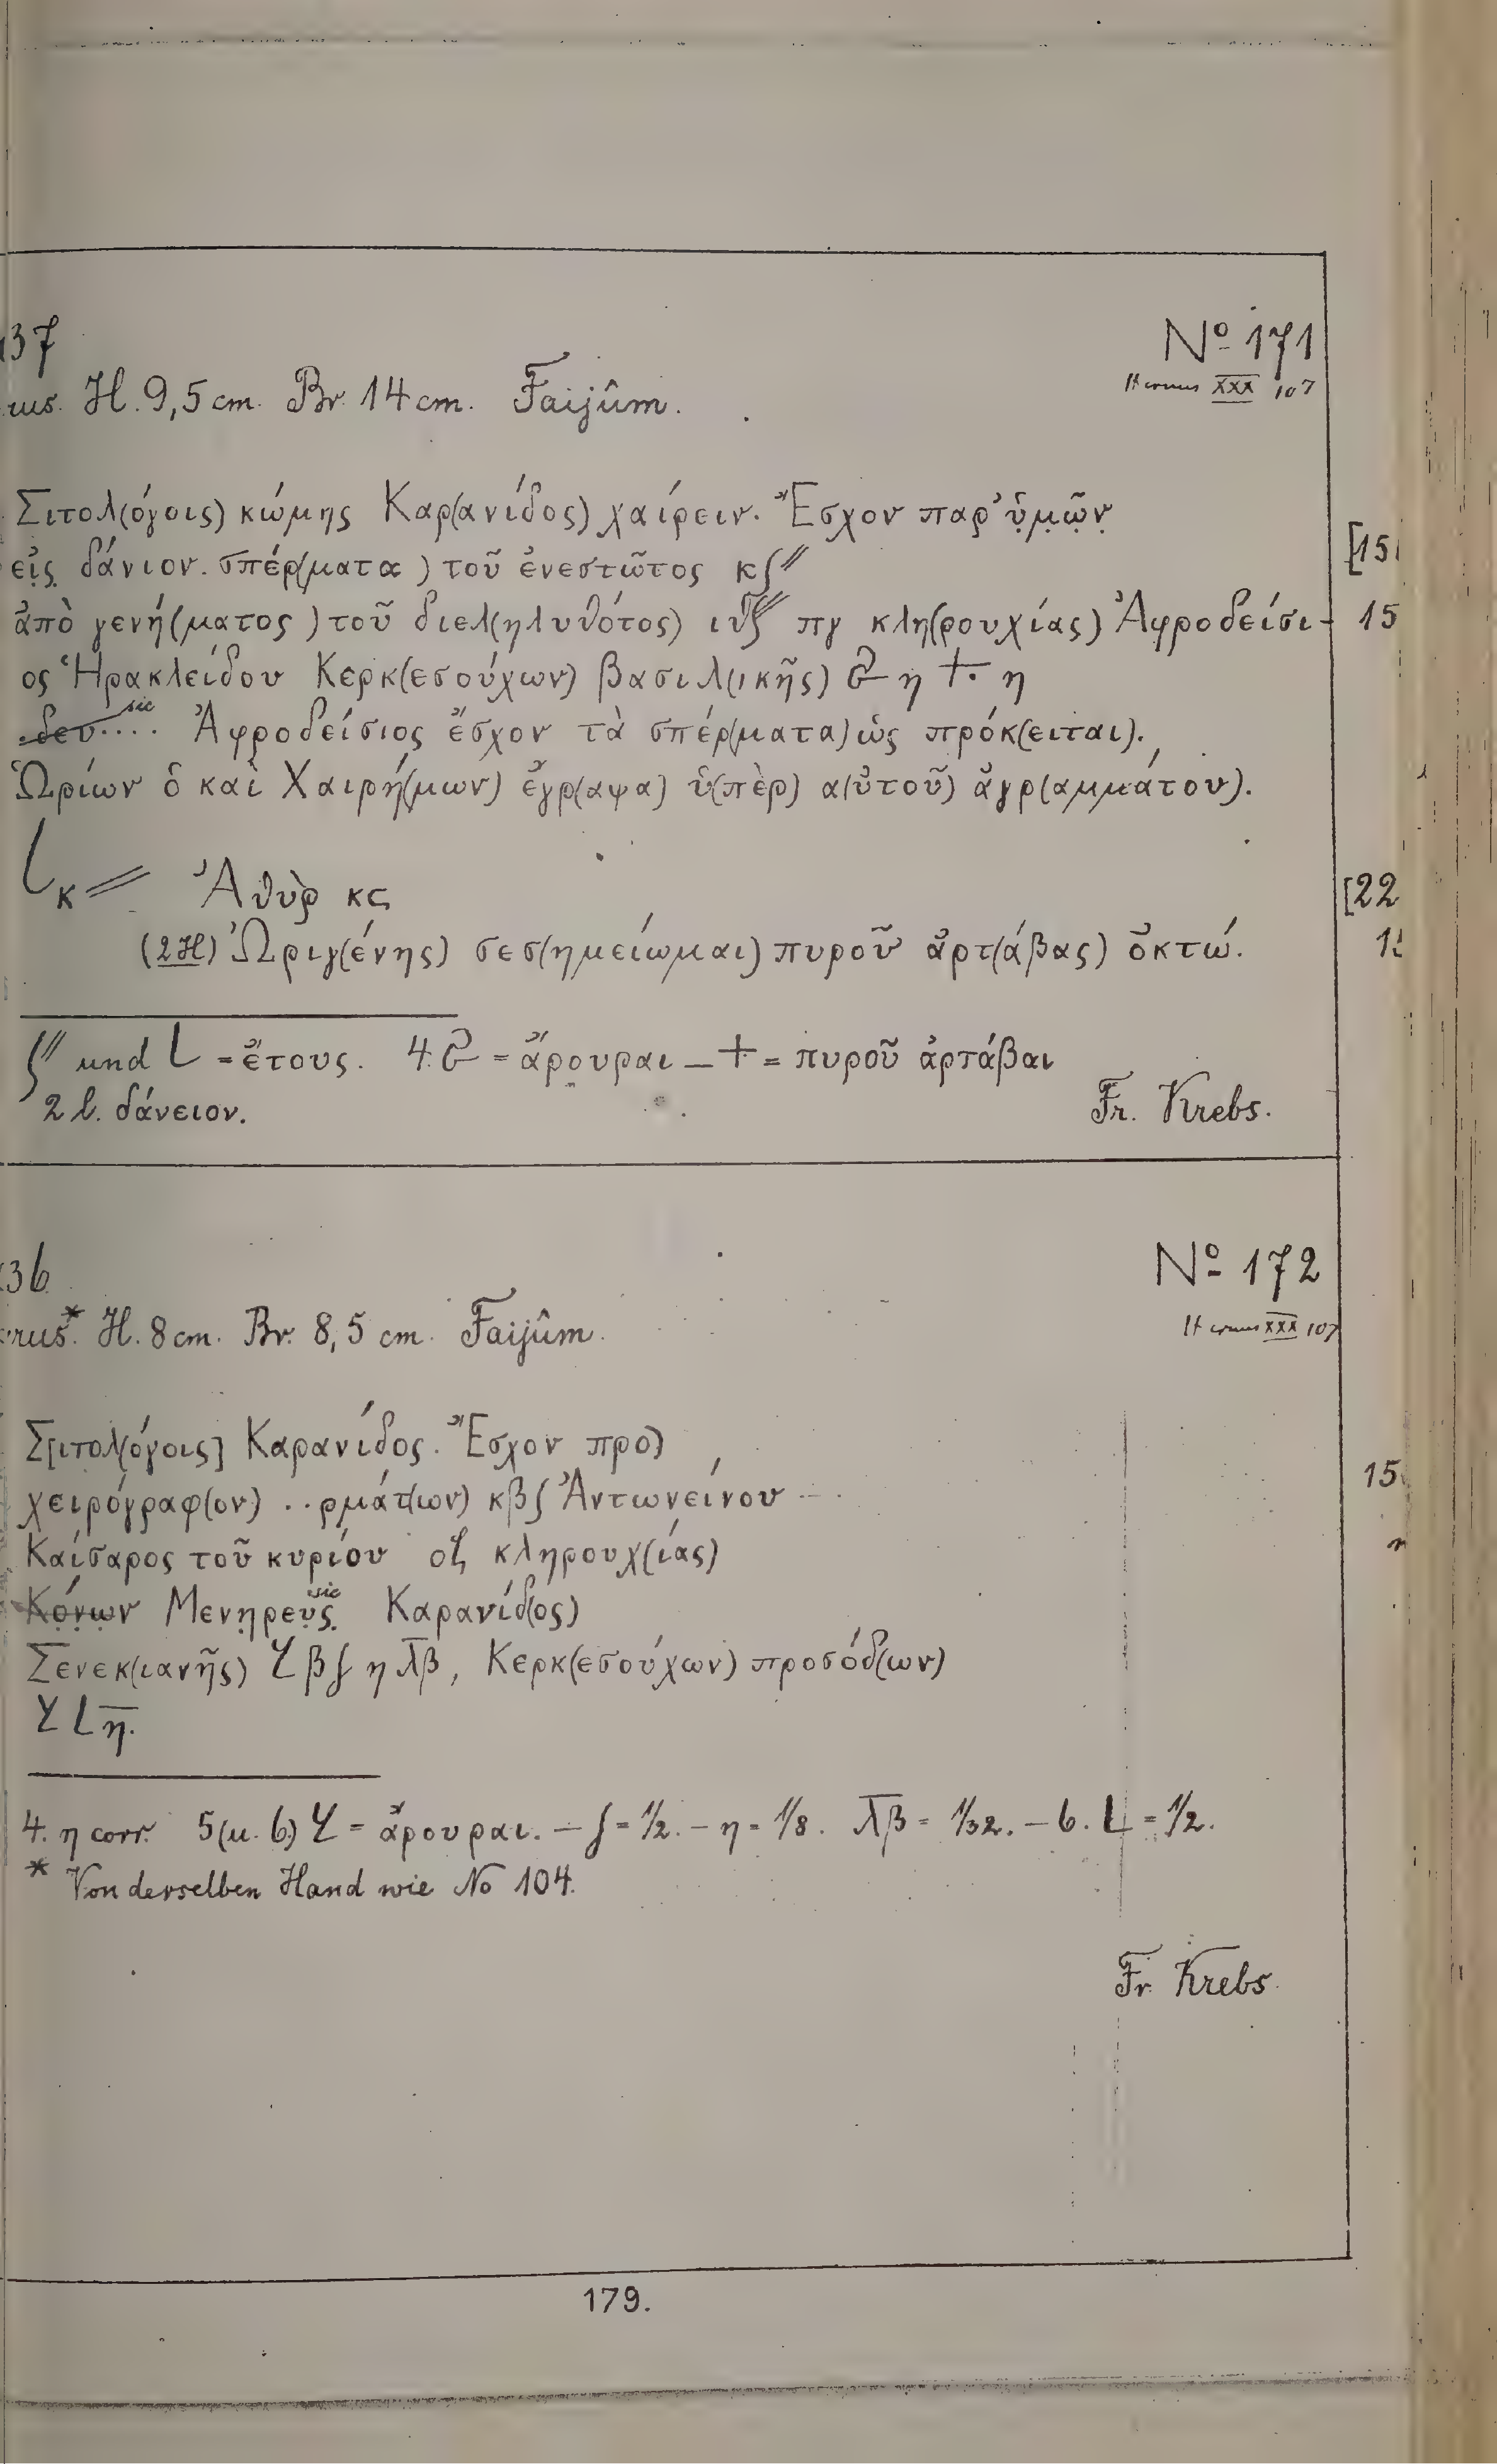 37
No 171
Hermes XXX 107
rus. H. 9,5 cm. Br. 14 cm. Faijûm.
Σιτολ(όγοις) κώμης Καρ(ανίδος) χαίρειν. Ἔσχον παρ' ὑ̣μ̣ῶ̣ν̣
εἰ̣ς̣ δάνιον. σπέρ(ματα) τοῦ ἐνεστῶτος κ ∫〃
ἀπὸ γενή(ματος) τοῦ διελ(ηλυθότος) ιθ∫〃 πγ κλη(ρουχίας) Ἀφροδείσι-
ος Ἡρακλείδου Κερκ(εσούχων) βασιλ(ικῆς) η ⨪ η
sic
Ἀφροδείσιος ἔσχον τὰ σπέρ(ματα) ὡς πρόκ(ειται).
Ὡρίων ὁ καὶ Χαιρή(μων) ἔγρ(αψα) ὑ(πὲρ) α(ὐτοῦ) ἀγρ(αμμάτου).
L κ〃 Ἁθὺρ κς
(2H) Ὡριγ(ένης) σεσ(ημείωμαι) πυροῦ ἀρτ(άβας) ὀκτώ.
∫〃 und L = ἔτους. 4. = ἄρουραι — ⨪ = πυροῦ ἀρτάβαι
2 l. δάνειον.
Fr. Krebs.
36
No 172
Hermes XXX 107
rus.* H. 8 cm. Br. 8,5 cm. Faijûm.
Σ[ιτολ(όγοις] Καρανίδος. Ἔσχον προ)
χειρόγραφ(ον) ..ρμάτ(ων) κβ∫ Ἀντωνείνου
Καίσαρος τοῦ κυρίου οζ κληρουχ(ίας)
Κό̣ν̣ω̣ν Μεν̣η̣ρευ̣ς̣ sic Καρανίδ(ος)
Σενεκ(ιανῆς) β∫ η λ̅β̅, Κερκ(εσούχων) προσόδ(ων)
L η̅.
4. η corr. 5 (u. 6) = ἄρουραι. — ∫ = 1/2. — η = 1/8. λ̅β̅ = 1/32. — 6. L = 1/2.
* Von derselben Hand wie No 104.
Fr. Krebs.
179.
[15
15
[22
15